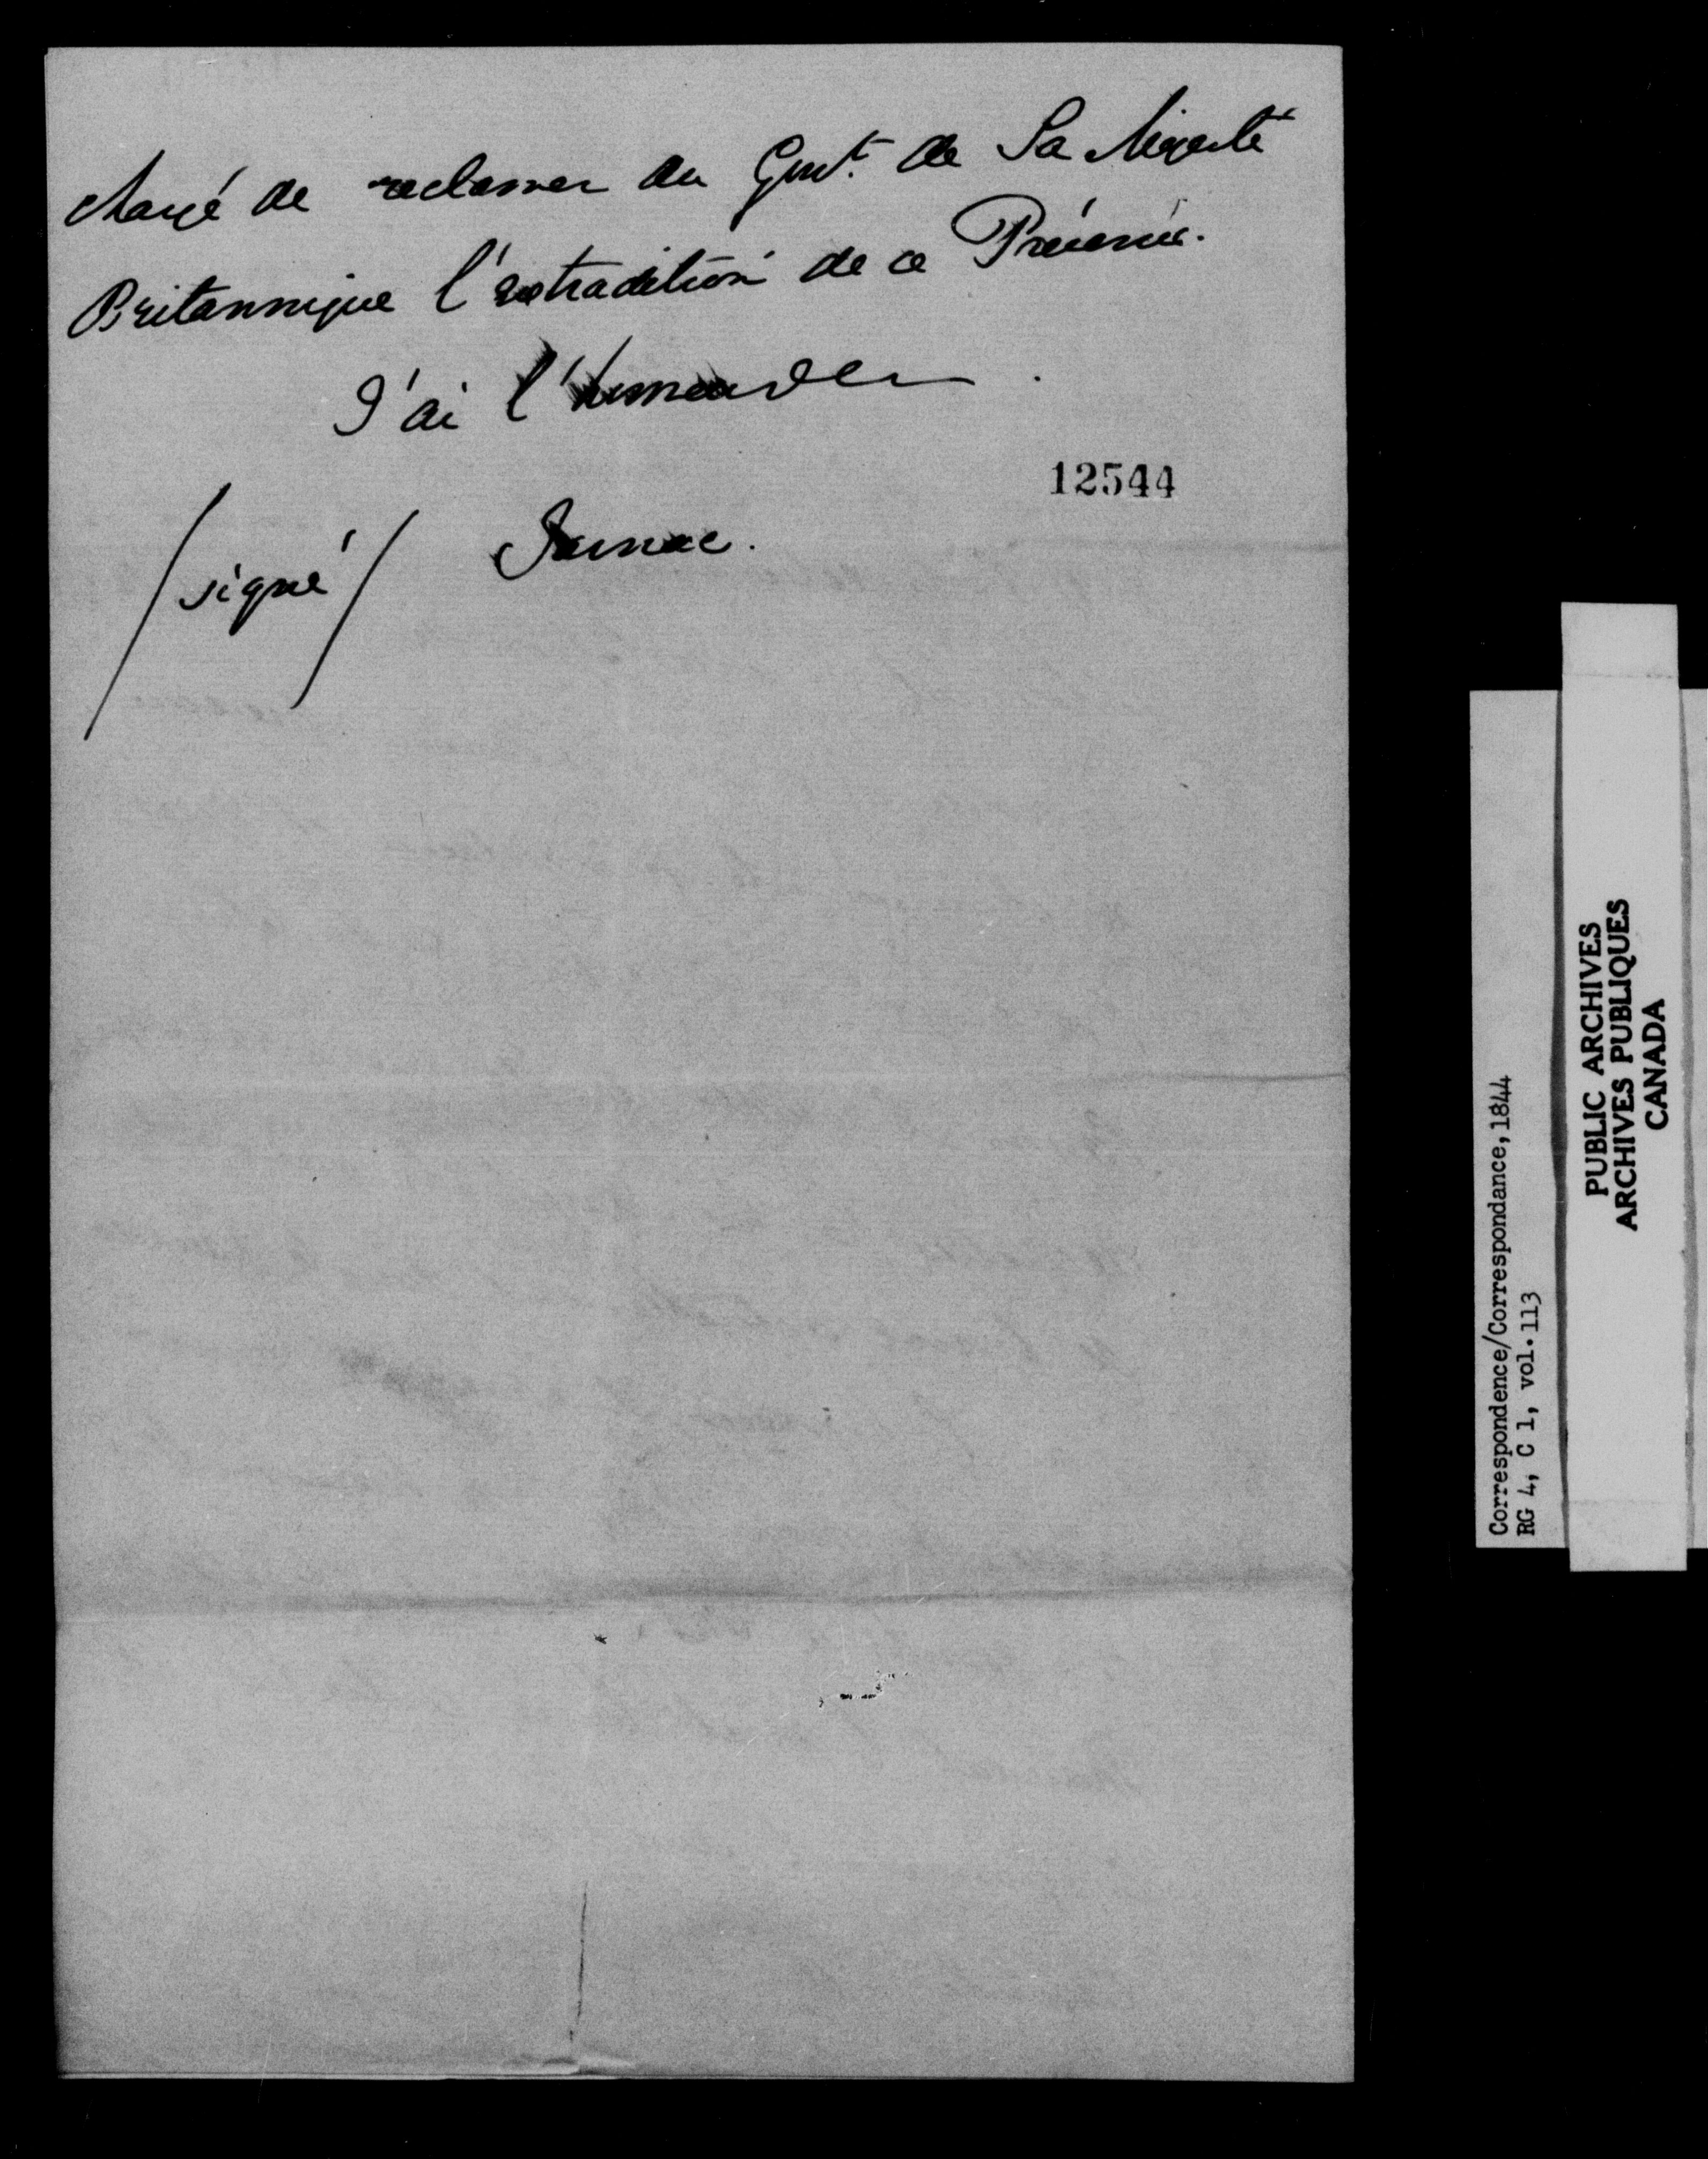 chargé de reclamer du Gouvt. de Sa Majesté
Britannique l'extradition de ce Prévenu.
J'ai l'honneur de
12544
/signé/ Jarnac.
Correspondence/Correspondance, 1844
RG 4, C 1, vol. 113
PUBLIC ARCHIVES
ARCHIVES PUBLIQUES
CANADA